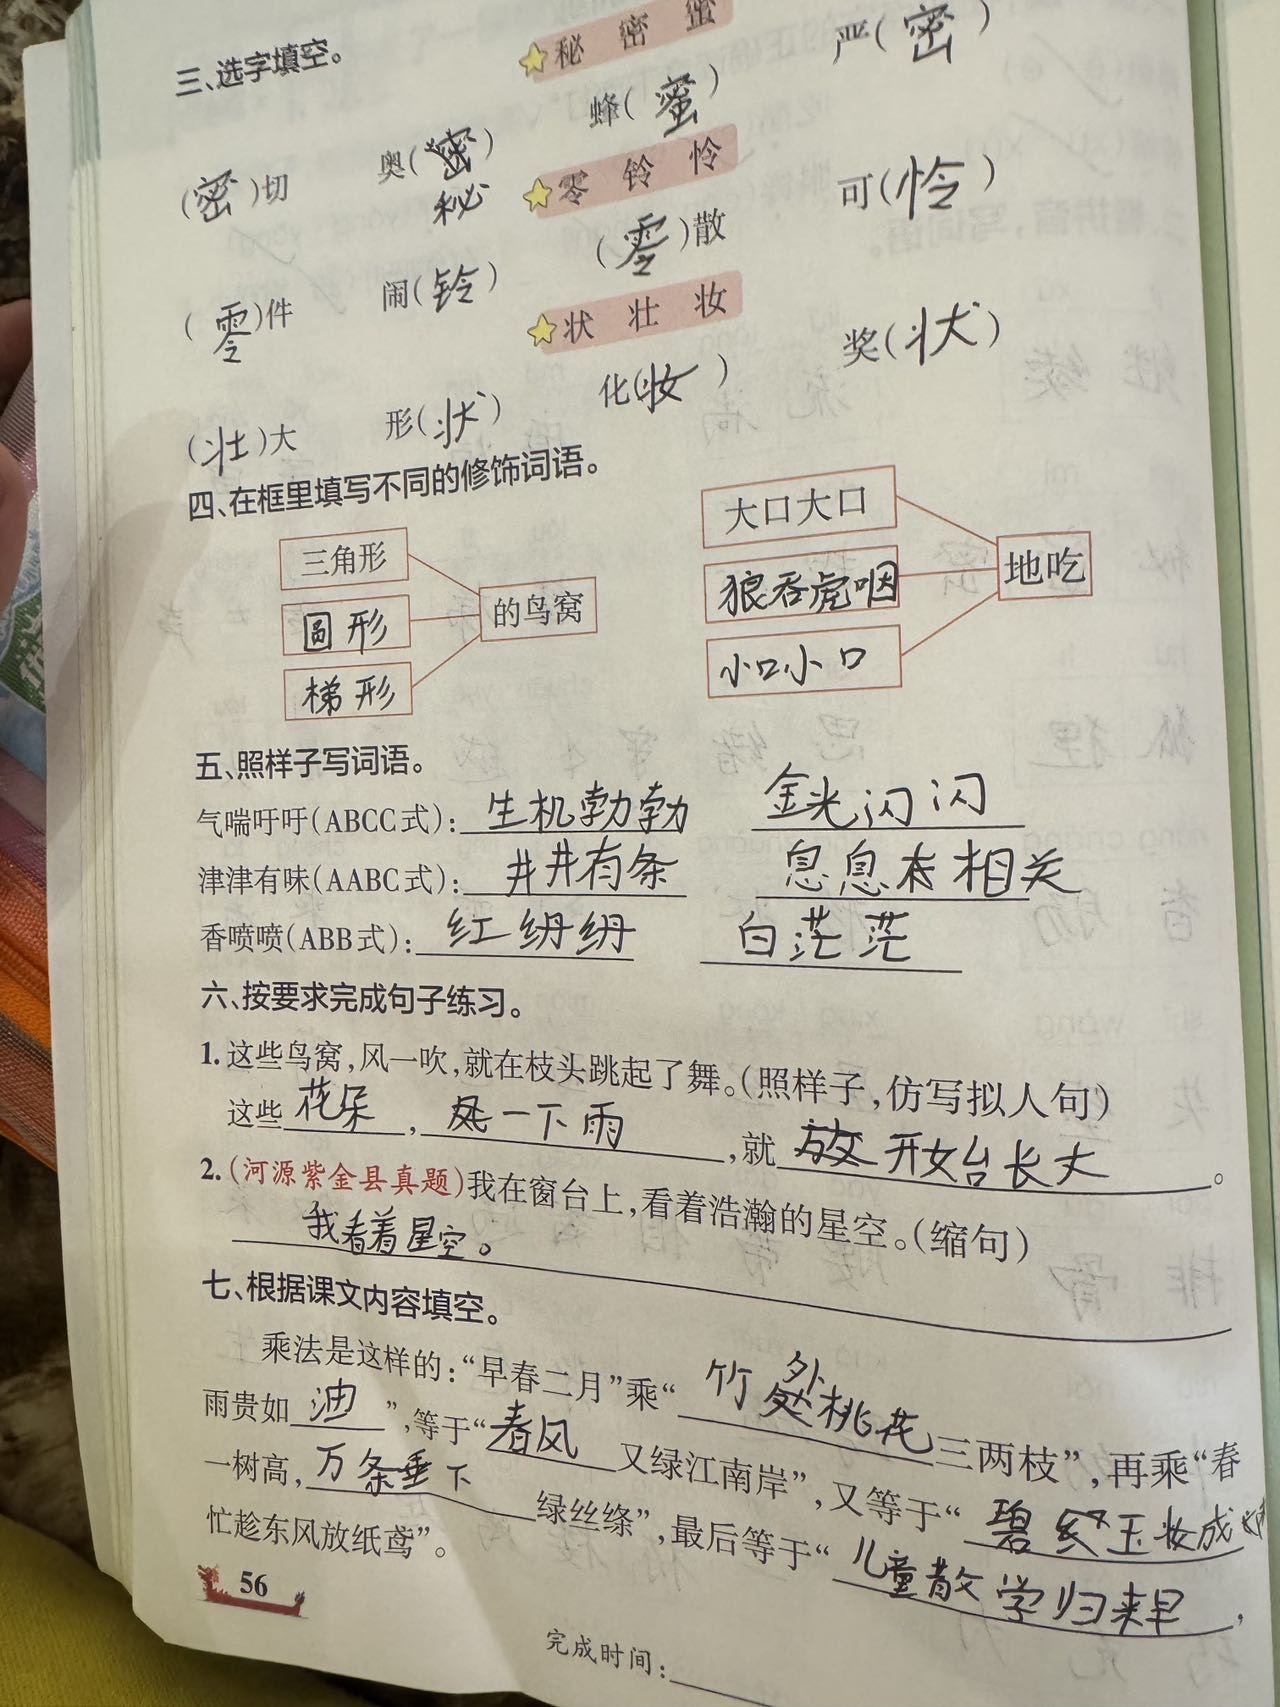 三、选字填空。
秘 密 蜜
(密)切 奥(秘) 蜂(蜜) 严(密)
零 铃 怜
(零)件 闹(铃) (零)散 可(怜)
状 壮 妆
(壮)大 形(状) 化(妆) 奖(状)
四、在框里填写不同的修饰词语。
三角形
圆形
梯形
的鸟窝
大口大口
狼吞虎咽
小口小口
地吃
五、照样子写词语。
气喘吁吁(ABCC式): 生机勃勃 金光闪闪
津津有味(AABC式): 井井有条 息息相关
香喷喷(ABB式): 红 白茫茫
六、按要求完成句子练习。
1.这些鸟窝,风一吹,就在枝头跳起了舞。(照样子,仿写拟人句)
这些花朵,一下雨,就开始长大。
2.(河源紫金县真题)我在窗台上,看着浩瀚的星空。(缩句)
我看着星空。
七、根据课文内容填空。
乘法是这样的:“早春二月”乘“竹外桃花三两枝”,再乘“春
雨贵如油”,等于“春风又绿江南岸”,又等于“碧玉妆成
一树高,万条垂下绿丝绦”,最后等于“儿童散学归来早,
忙趁东风放纸鸢”。
56
完成时间: